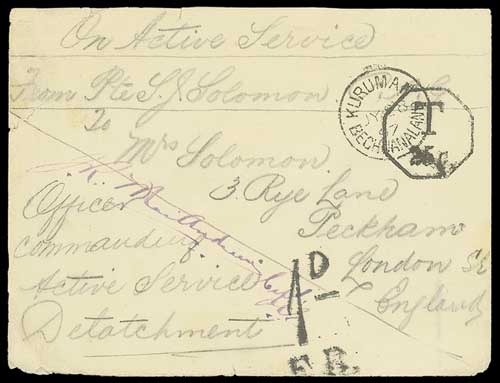 On Active Service
From Pte S.J. Solomon
To
Mrs Solomon
3, Rye Lane
Peckham
London SE
England
Officer
commanding
Active Service
Detatchment
KURUMAN
JY
97
BECHUANALAND
T
1D
F.B.